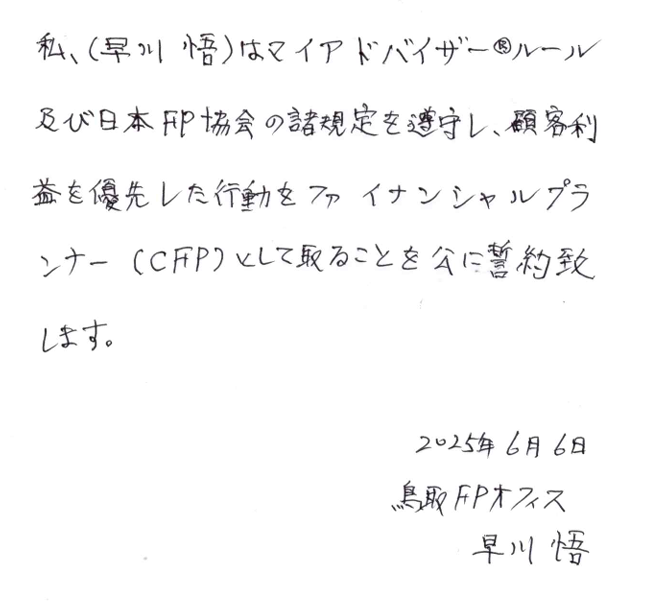 私、(早川 悟)はマイアドバイザー®ルール
及び日本FP協会の諸規定を遵守し、顧客利
益を優先した行動をファイナンシャルプラ
ンナー(CFP)として取ることを公に誓約致
します。
2025年6月6日
鳥取FPオフィス
早川 悟